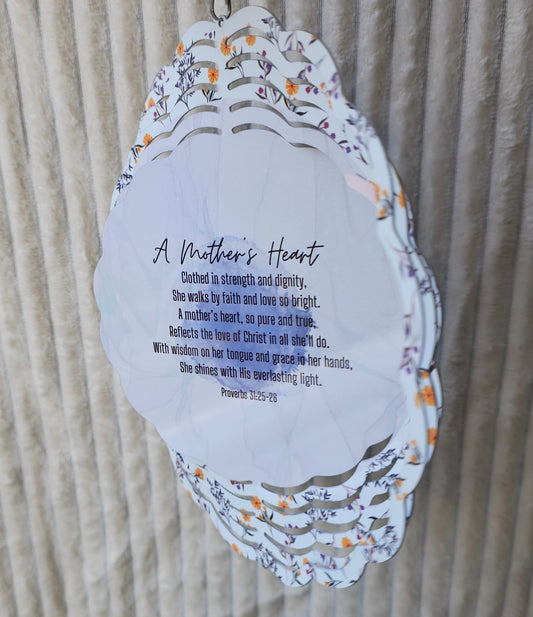 A Mother's Heart
Clothed in strength and dignity,
She walks by faith and love so bright.
A mother's heart, so pure and true,
Reflects the love of Christ in all she'll do.
With wisdom on her tongue and grace in her hands,
She shines with His everlasting light.
Proverbs 31:25-26